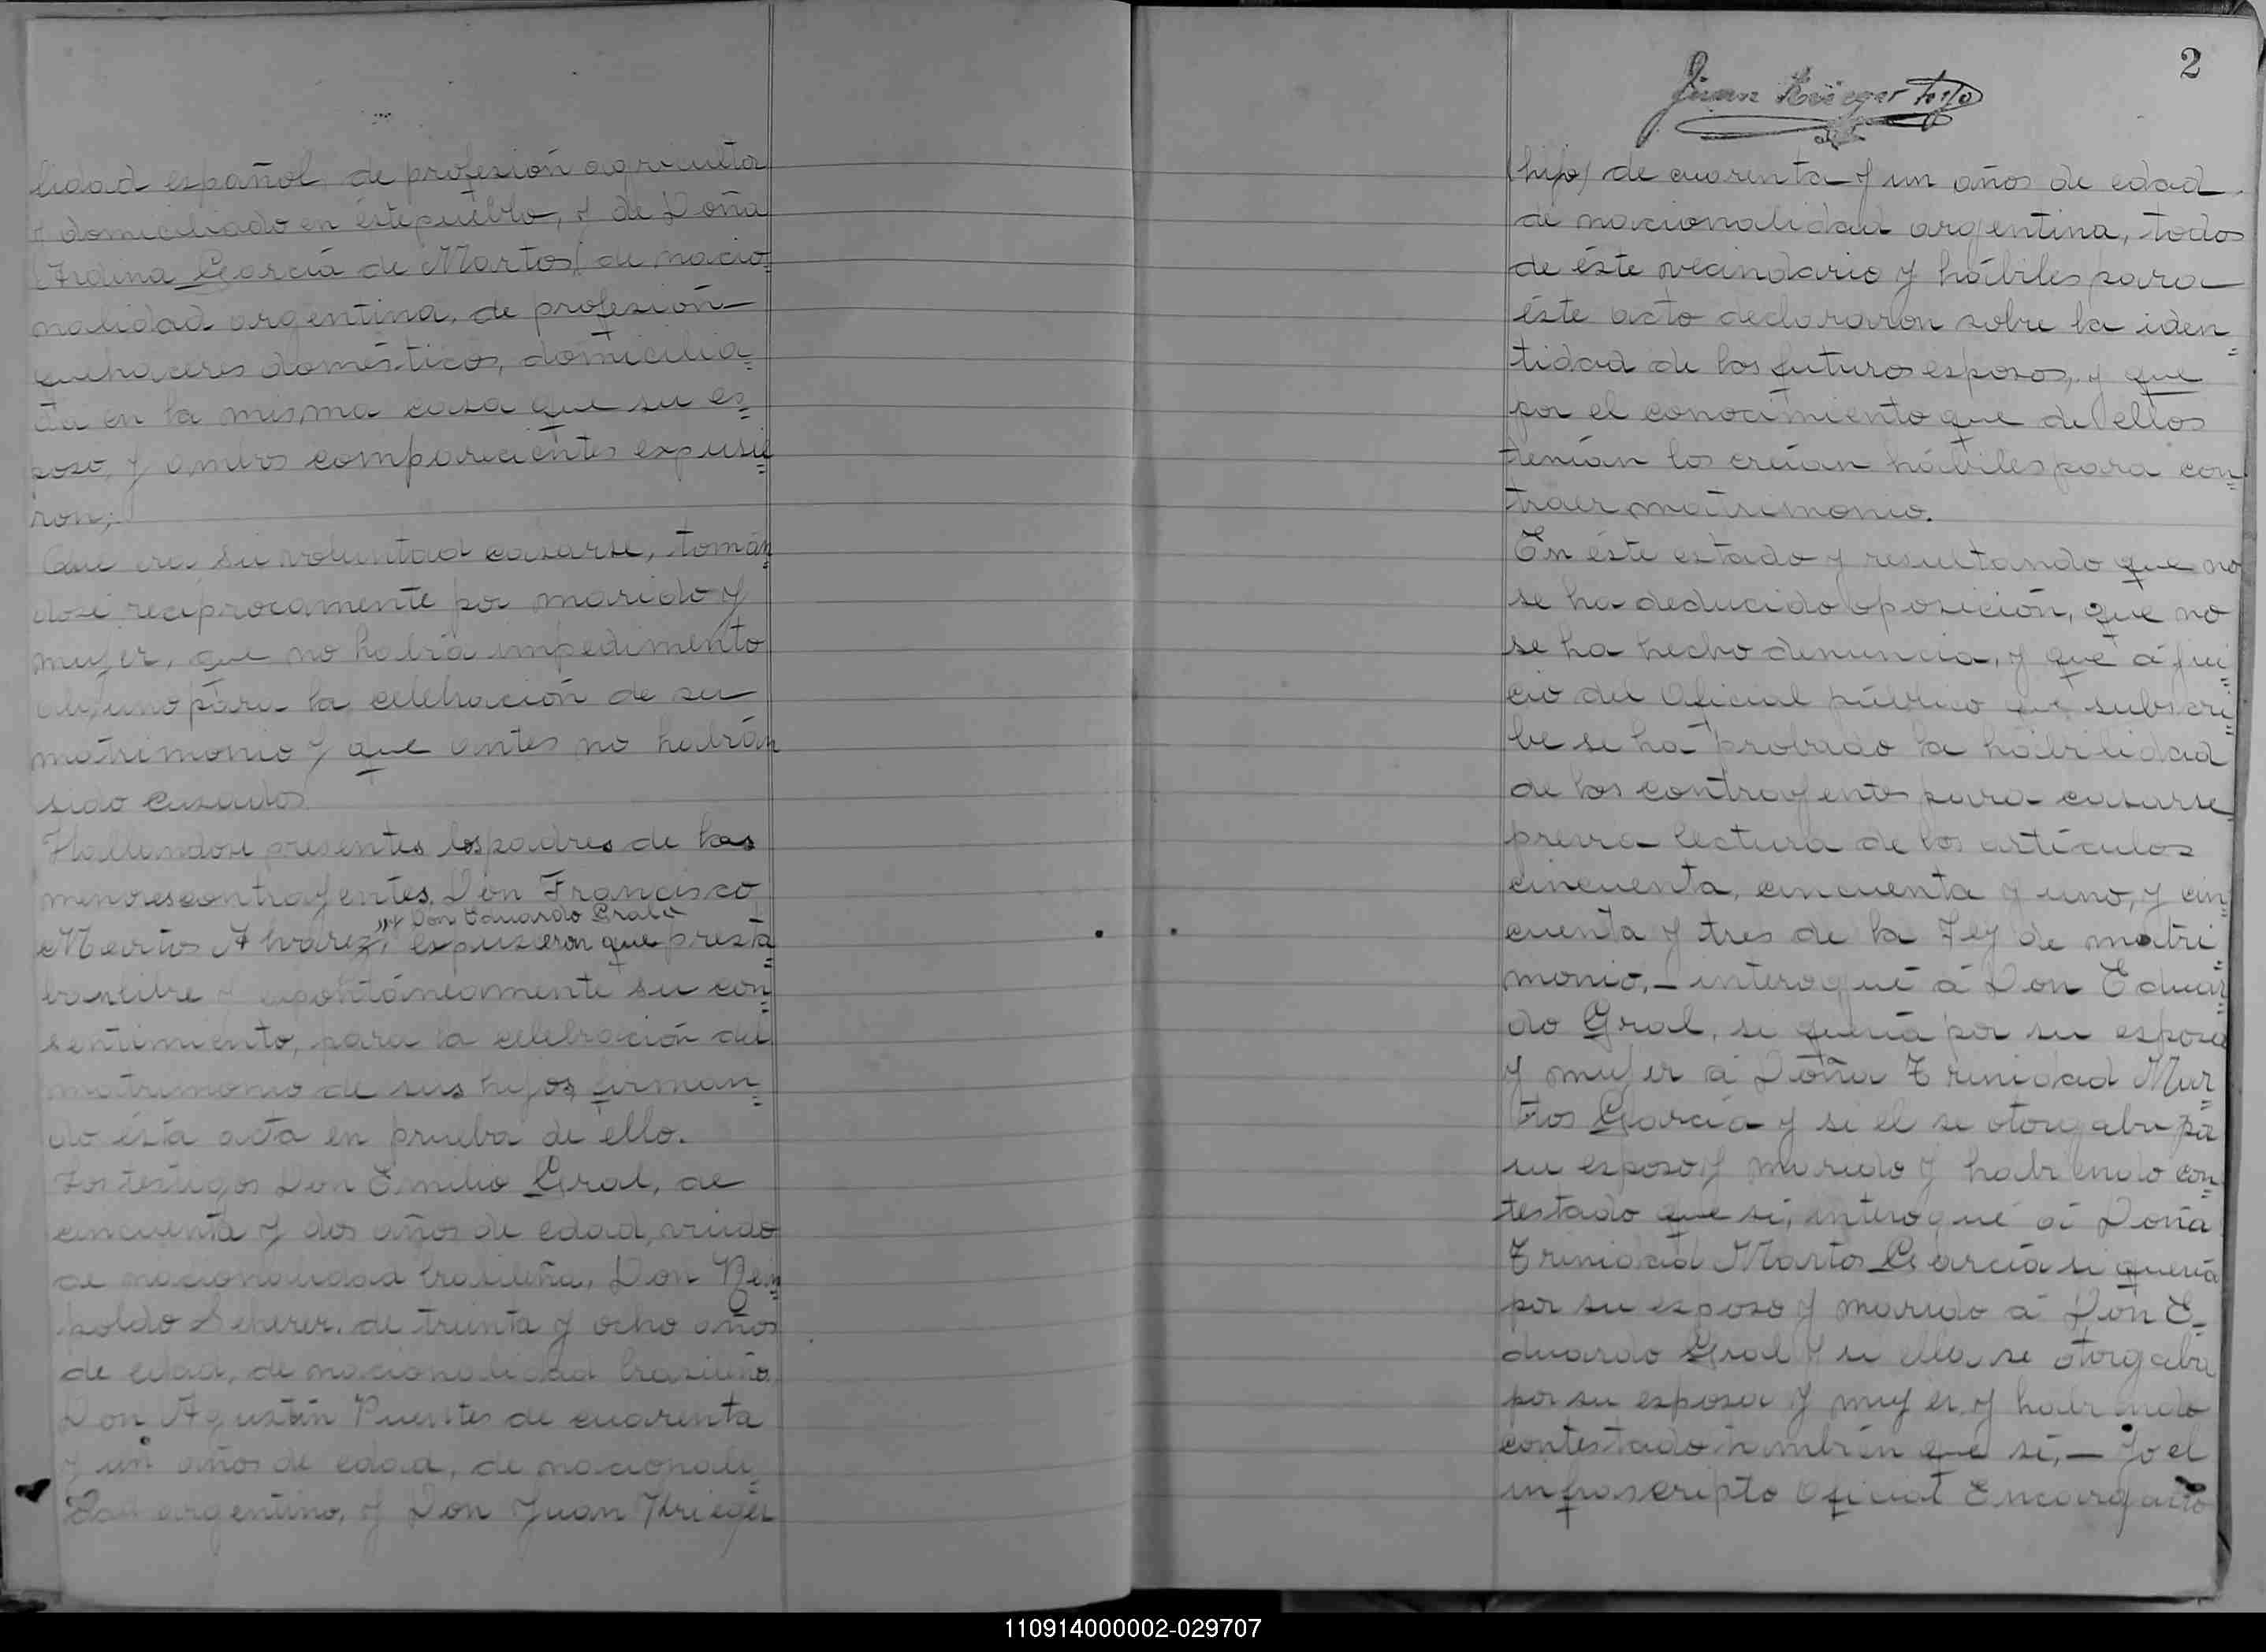 lidad español, de profesión agriculta
y domiciliado en éste pueblo, y de Doña
García de Martos, de nacio=
nalidad argentina, de profesión
quehaceres domésticos, domicilia=
da en la misma casa que su es=
poso, y ambos comparecientes expusie=
ron;
Que era su voluntad casarse, tomán=
dose recíprocamente por marido y
mujer, que no había impedimento
alguno para la celebración de su
matrimonio y que antes no habrán
sido casados
Hallandose presentes los padres de los
menores contrayentes, Don Francisco
y Don Eduardo Gral
Martos Alvarez, expusieron que presta=
ban libre y espontáneamente su con=
sentimiento, para la celebración del
matrimonio de sus hijos, firman=
do ésta acta en prueba de ello.
Los testigos Don Emilio Gral, de
cincuenta y dos años de edad, viudo
de nacionalidad brasileña, Don
Scherer, de treinta y ocho años
de edad, de nacionalidad brasileña,
Don Agustín Puentes de cuarenta
y un años de edad, de nacionali=
dad argentino, y Don Juan Krieger
2
Juan Krieger hijo
(hijo) de cuarenta y un años de edad,
de nacionalidad argentina, todos
de éste vecindario y hábiles para
éste acto declararon sobre la iden=
tidad de los futuros esposos, y que
por el conocimiento que de ellos
tenían los creían hábiles para con=
traer matrimonio.
En éste estado y resultando que no
se ha deducido oposición, que no
se ha hecho denuncia, y que á jui=
cio del Oficial público que subscri=
be se ha probado la habilidad
de los contrayentes para casarse
previa lectura de los artículos
cincuenta, cincuenta y uno, y cin=
cuenta y tres de la Ley de matri=
monio,— interogué á Don Eduar=
do Gral, si quería por su esposa
y mujer á Doña Trinidad Mar=
tos García y si el se otorgaba por
su esposo y marido y habiendo con=
testado que sí, interogué á Doña
Trinidad Martos García si quería
por su esposo y marido á Don E=
duardo Gral y si ella se otorgaba
por su esposa y mujer, y habiendo
contestado también que sí,— Yo el
infrascripto Oficial Encargado
110914000002-029707